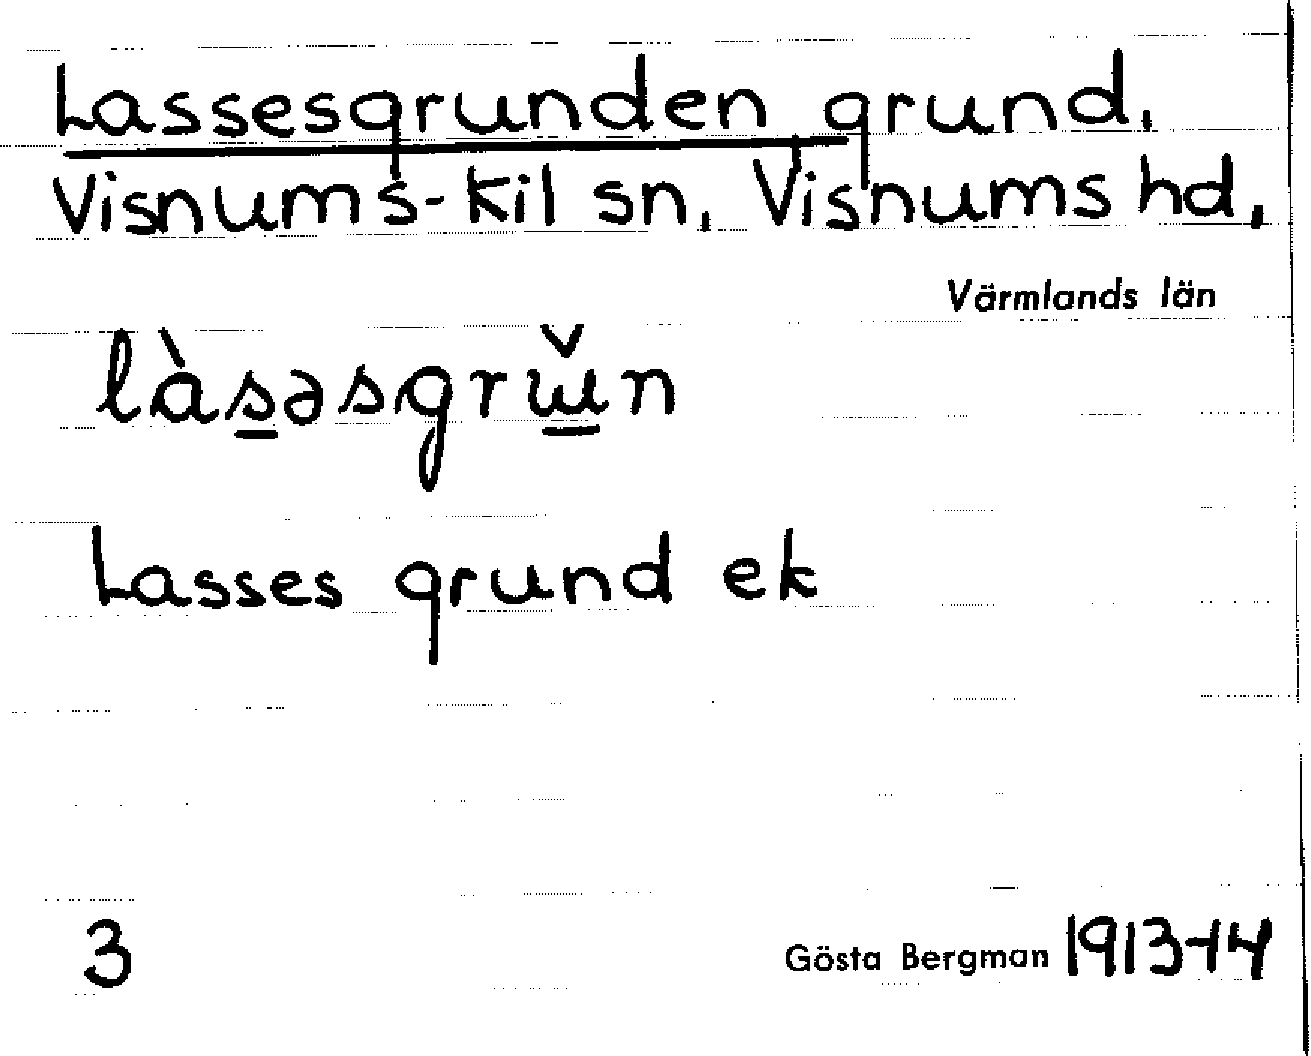 Lassesgrunden grund,
Visnums-Kil sn, Visnums hd,
Värmlands län
làs̲əsgrɯ̲̌n
Lasses grund ek
3
Gösta Bergman 1913-14